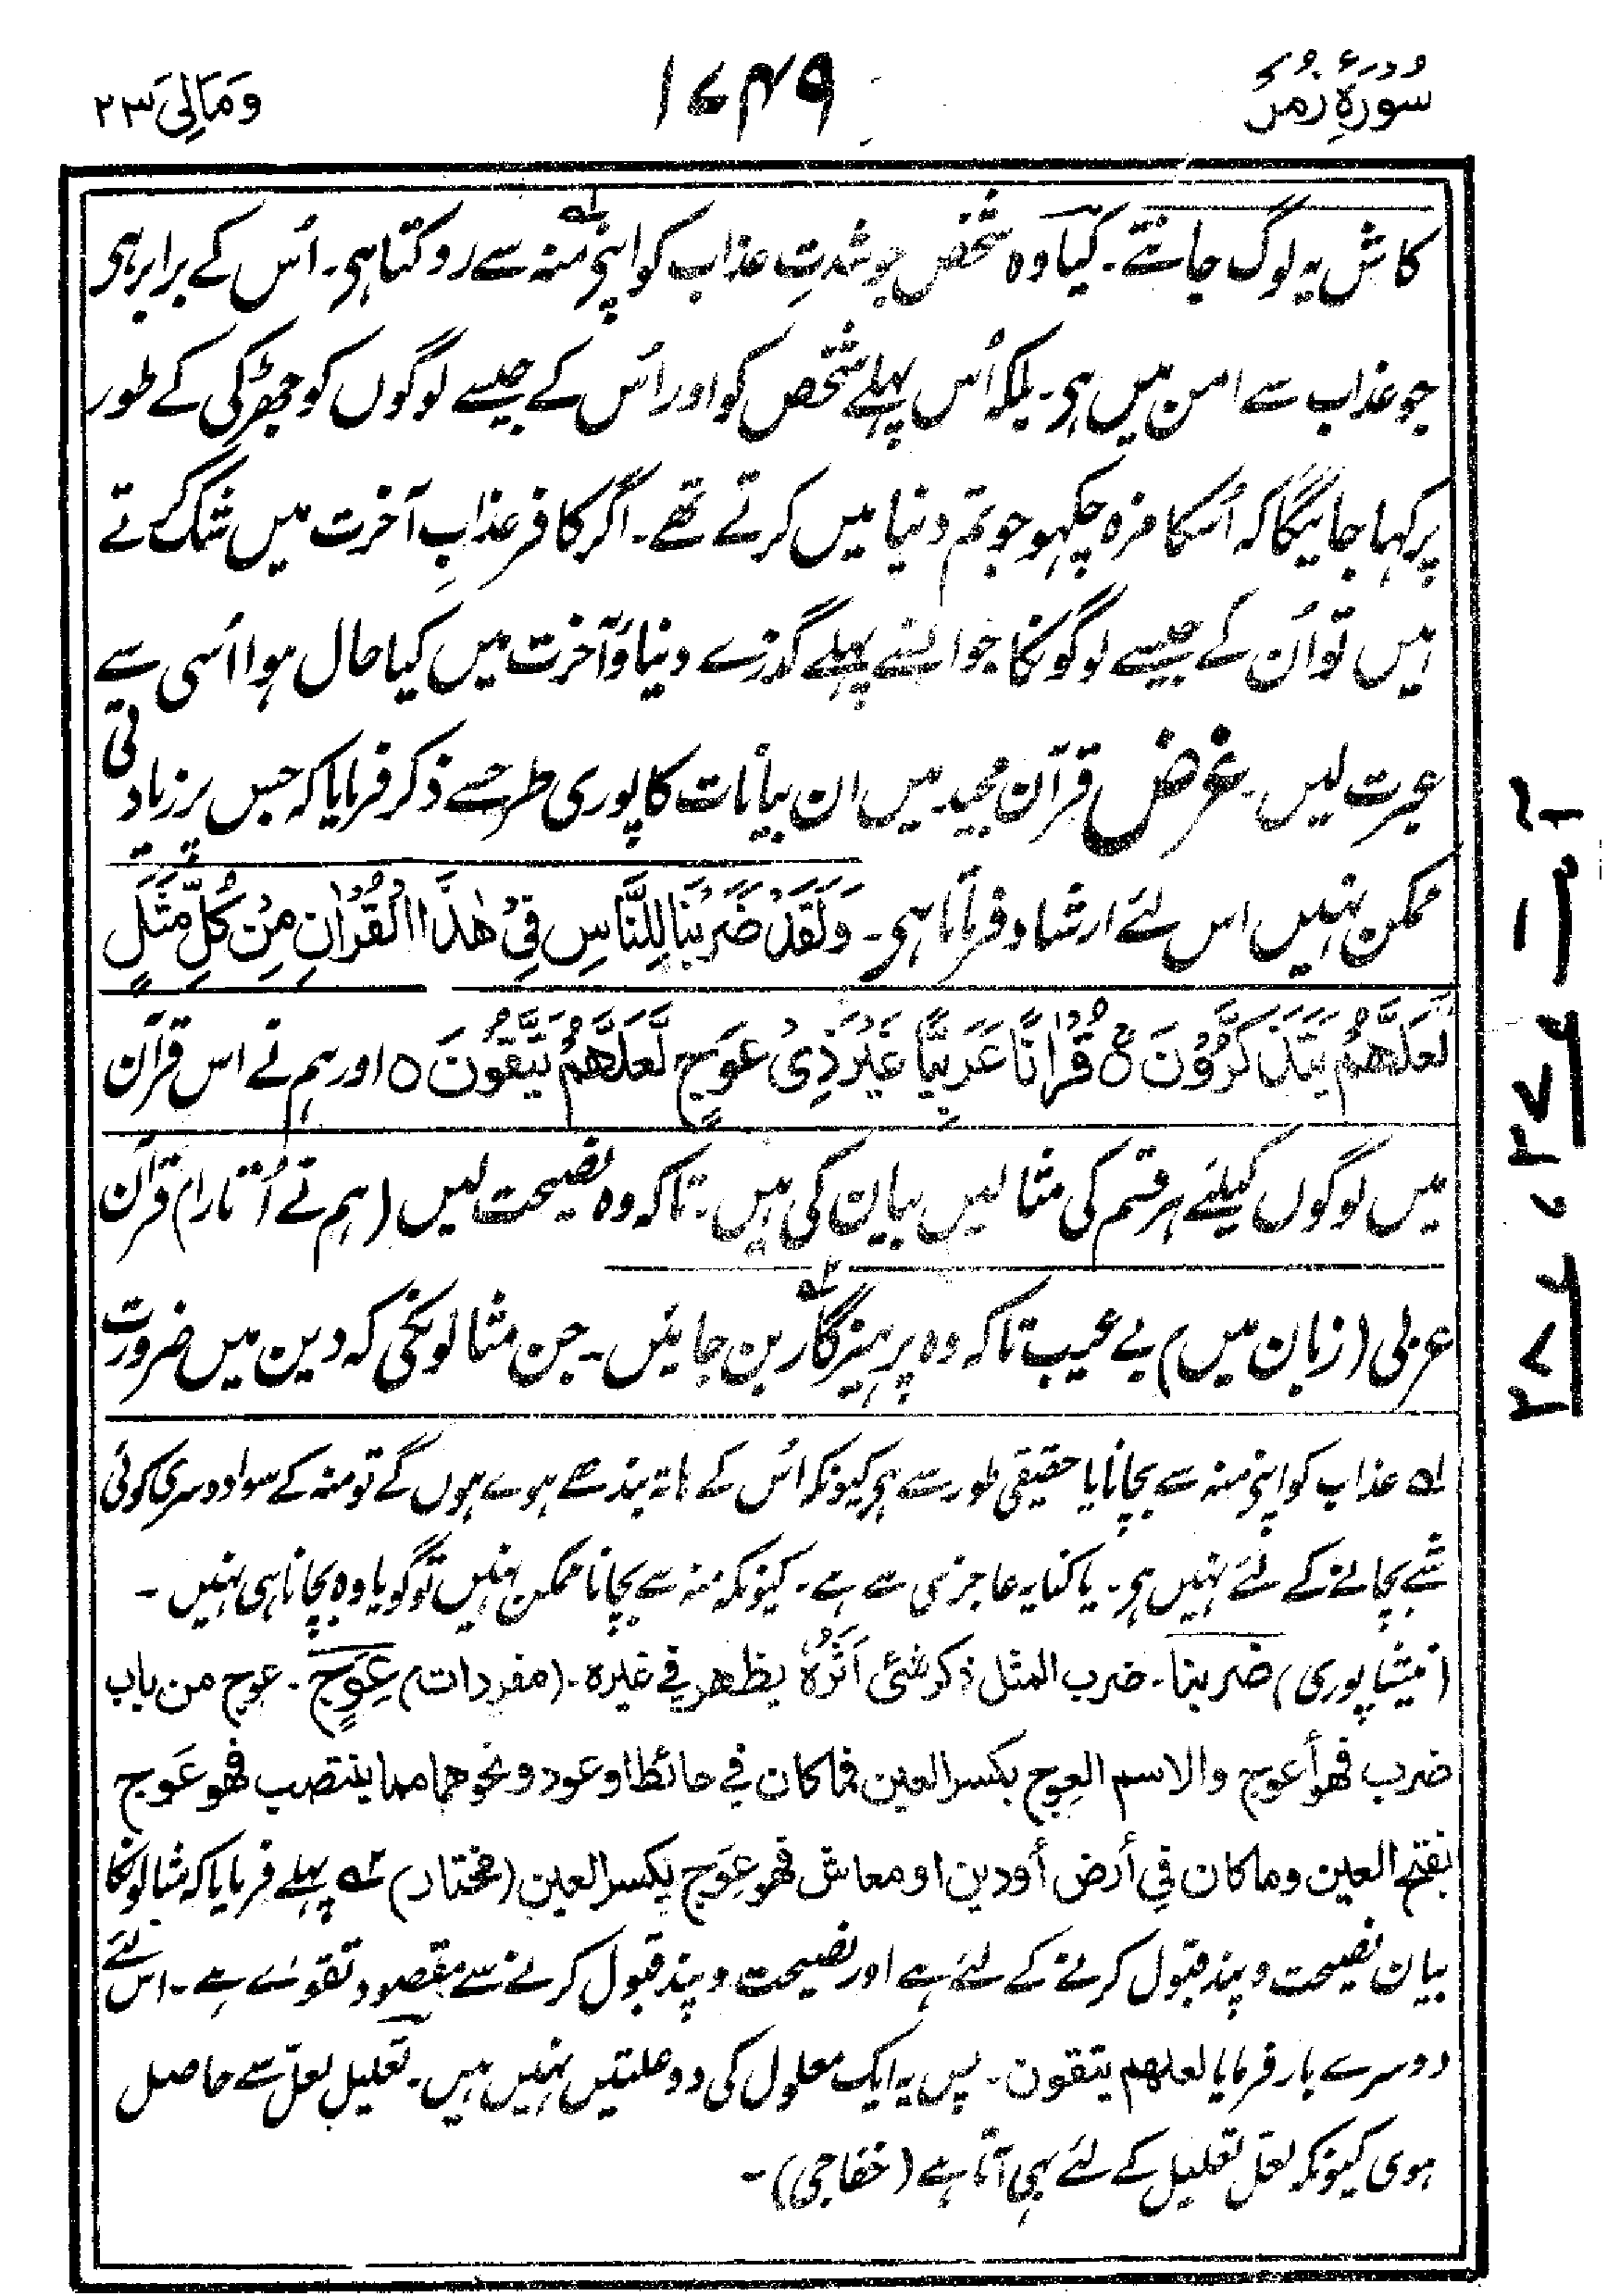 سُورَۂِ زُمَر
۱۷۴۹
وَمَالِیَ ۲۳
کاش یہ لوگ جانتے ۔ کیا وہ شخص جو شدتِ عذاب کو اپنی منہ سے روکتا ہی ۔ اُس کے برابر ہی
جو عذاب سے امن میں ہی ۔ بلکہ اُس پہلے شخص کو اور اُس کے جیسے لوگوں کو جھڑکی کے طور
پر کہا جائیگا کہ اُسکا مزہ چکہو جو تم دنیا میں کرتے تھے ۔ اگر کافر عذابِ آخرت میں شک کرتے
ہیں تو اُن کے جیسے لوگونکا جو انسے پہلے گذرے دنیا و آخرت میں کیا حال ہوا اُسی سے
عبرت لیں ۔ غرض قرآن مجید میں ان بیانات کا پوری طرحسے ذکر فرمایا کہ جس پر زیادتی
ممکن نہیں اس لئے ارشاد فرماتا ہی ۔ وَلَقَدْ ضَرَبْنَا لِلنَّاسِ فِیْ ھٰذَا الْقُرْاٰنِ مِنْ کُلِّ مَثَلٍ
لَّعَلَّھُمْ یَتَذَکَّرُوْنَ ۵ قُرْاٰنًا عَرَبِیًّا غَیْرَ ذِیْ عِوَجٍ لَّعَلَّھُمْ یَتَّقُوْنَ ۵ اور ہم نے اس قرآن
میں لوگوں کیلئے ہر قسم کی مثالیں بیان کی ہیں ۔ تاکہ وہ نصیحت لیں (ہم نے اُتارا) قرآن
عربی (زبان میں) بے عیب تاکہ وہ پرہیزگار ؎۲ بن جائیں ۔ جن مثالونکی کہ دین میں ضرورت
؎۱ عذاب کو اپنی منہ سے بچانا یا حقیقی طور سے ہی کیونکہ اُس کے ہاتہ بندھے ہوے ہوں گے تو منہ کے سوا دوسری کوئی
شے بچانے کے لئے نہیں ہی ۔ یا کنایہ عاجزی سے ہے ۔ کیونکہ منہ سے بچانا ممکن نہیں تو گویا وہ بچانا ہی نہیں ۔
(نیشاپوری) ضربنا ۔ ضرب المثل ذکر شئی اَثَرُہٗ یظھر فی غیرہ ۔ (مفردات) عِوَجٍ ۔ عوج من باب
ضرب فھو أعوج والاسم العِوج بکسر العین فما کان فی حائط او عود و نحوھما مما ینتصب فھو عَوج
بفتح العین وما کان فی أرض أو دین او معاش فھو عِوَج بکسر العین (مختار) ؎۲ پہلے فرمایا کہ مثالونکا
بیان نصیحت و پند قبول کرنے کے لئے ہے اور نصیحت و پند قبول کرنے سے مقصود تقوے ہے ۔ اس لئے
دوسرے بار فرمایا لعلھم یتقون ۔ پس یہ ایک معلول کی دو علتیں نہیں ہیں ۔ تعلیل لعل سے حاصل
ہوی کیونکہ لعل تعلیل کے لئے بہی آتا ہے (خفاجی) ۔